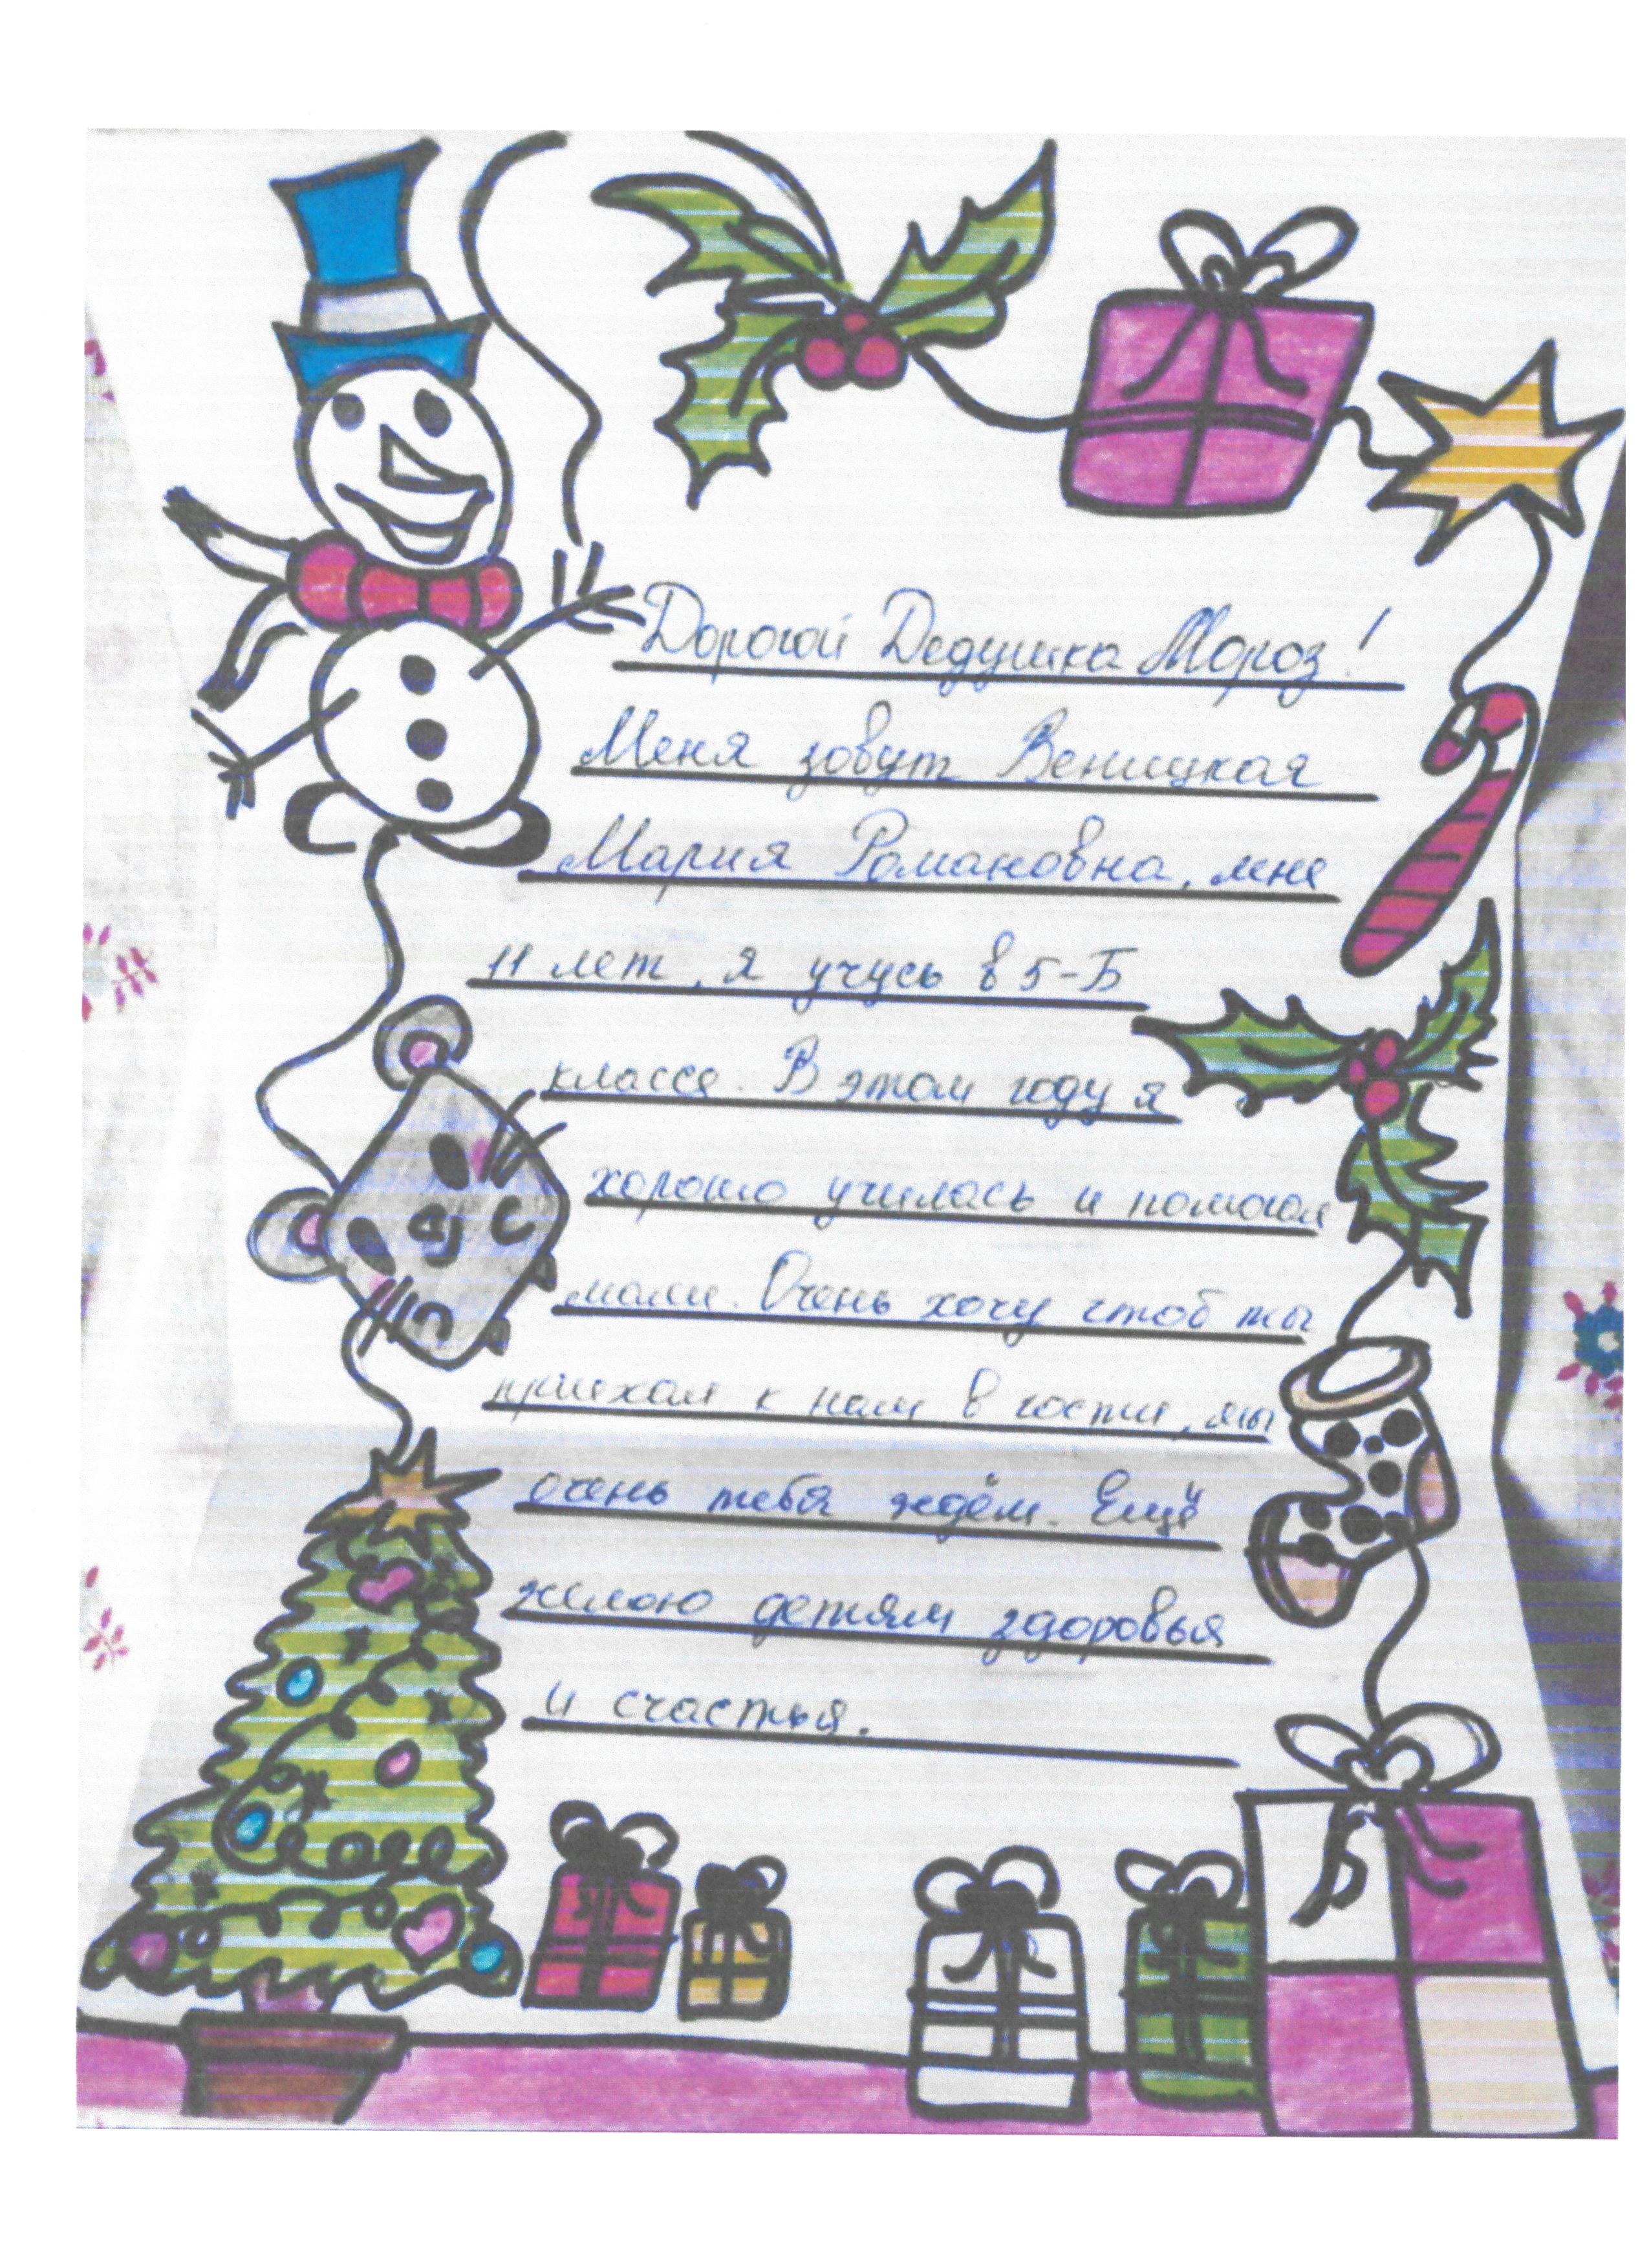 Дорогой Дедушка Мороз!
Меня зовут Веницкая
Мария Романовна, мне
11 лет, я учусь в 5-Б
классе. В этом году я
хорошо училась и помогал
маме. Очень хочу чтоб ты
приехал к нам в гости, мы
очень тебя ждём. Ещё
желаю детям здоровья
и счастья.